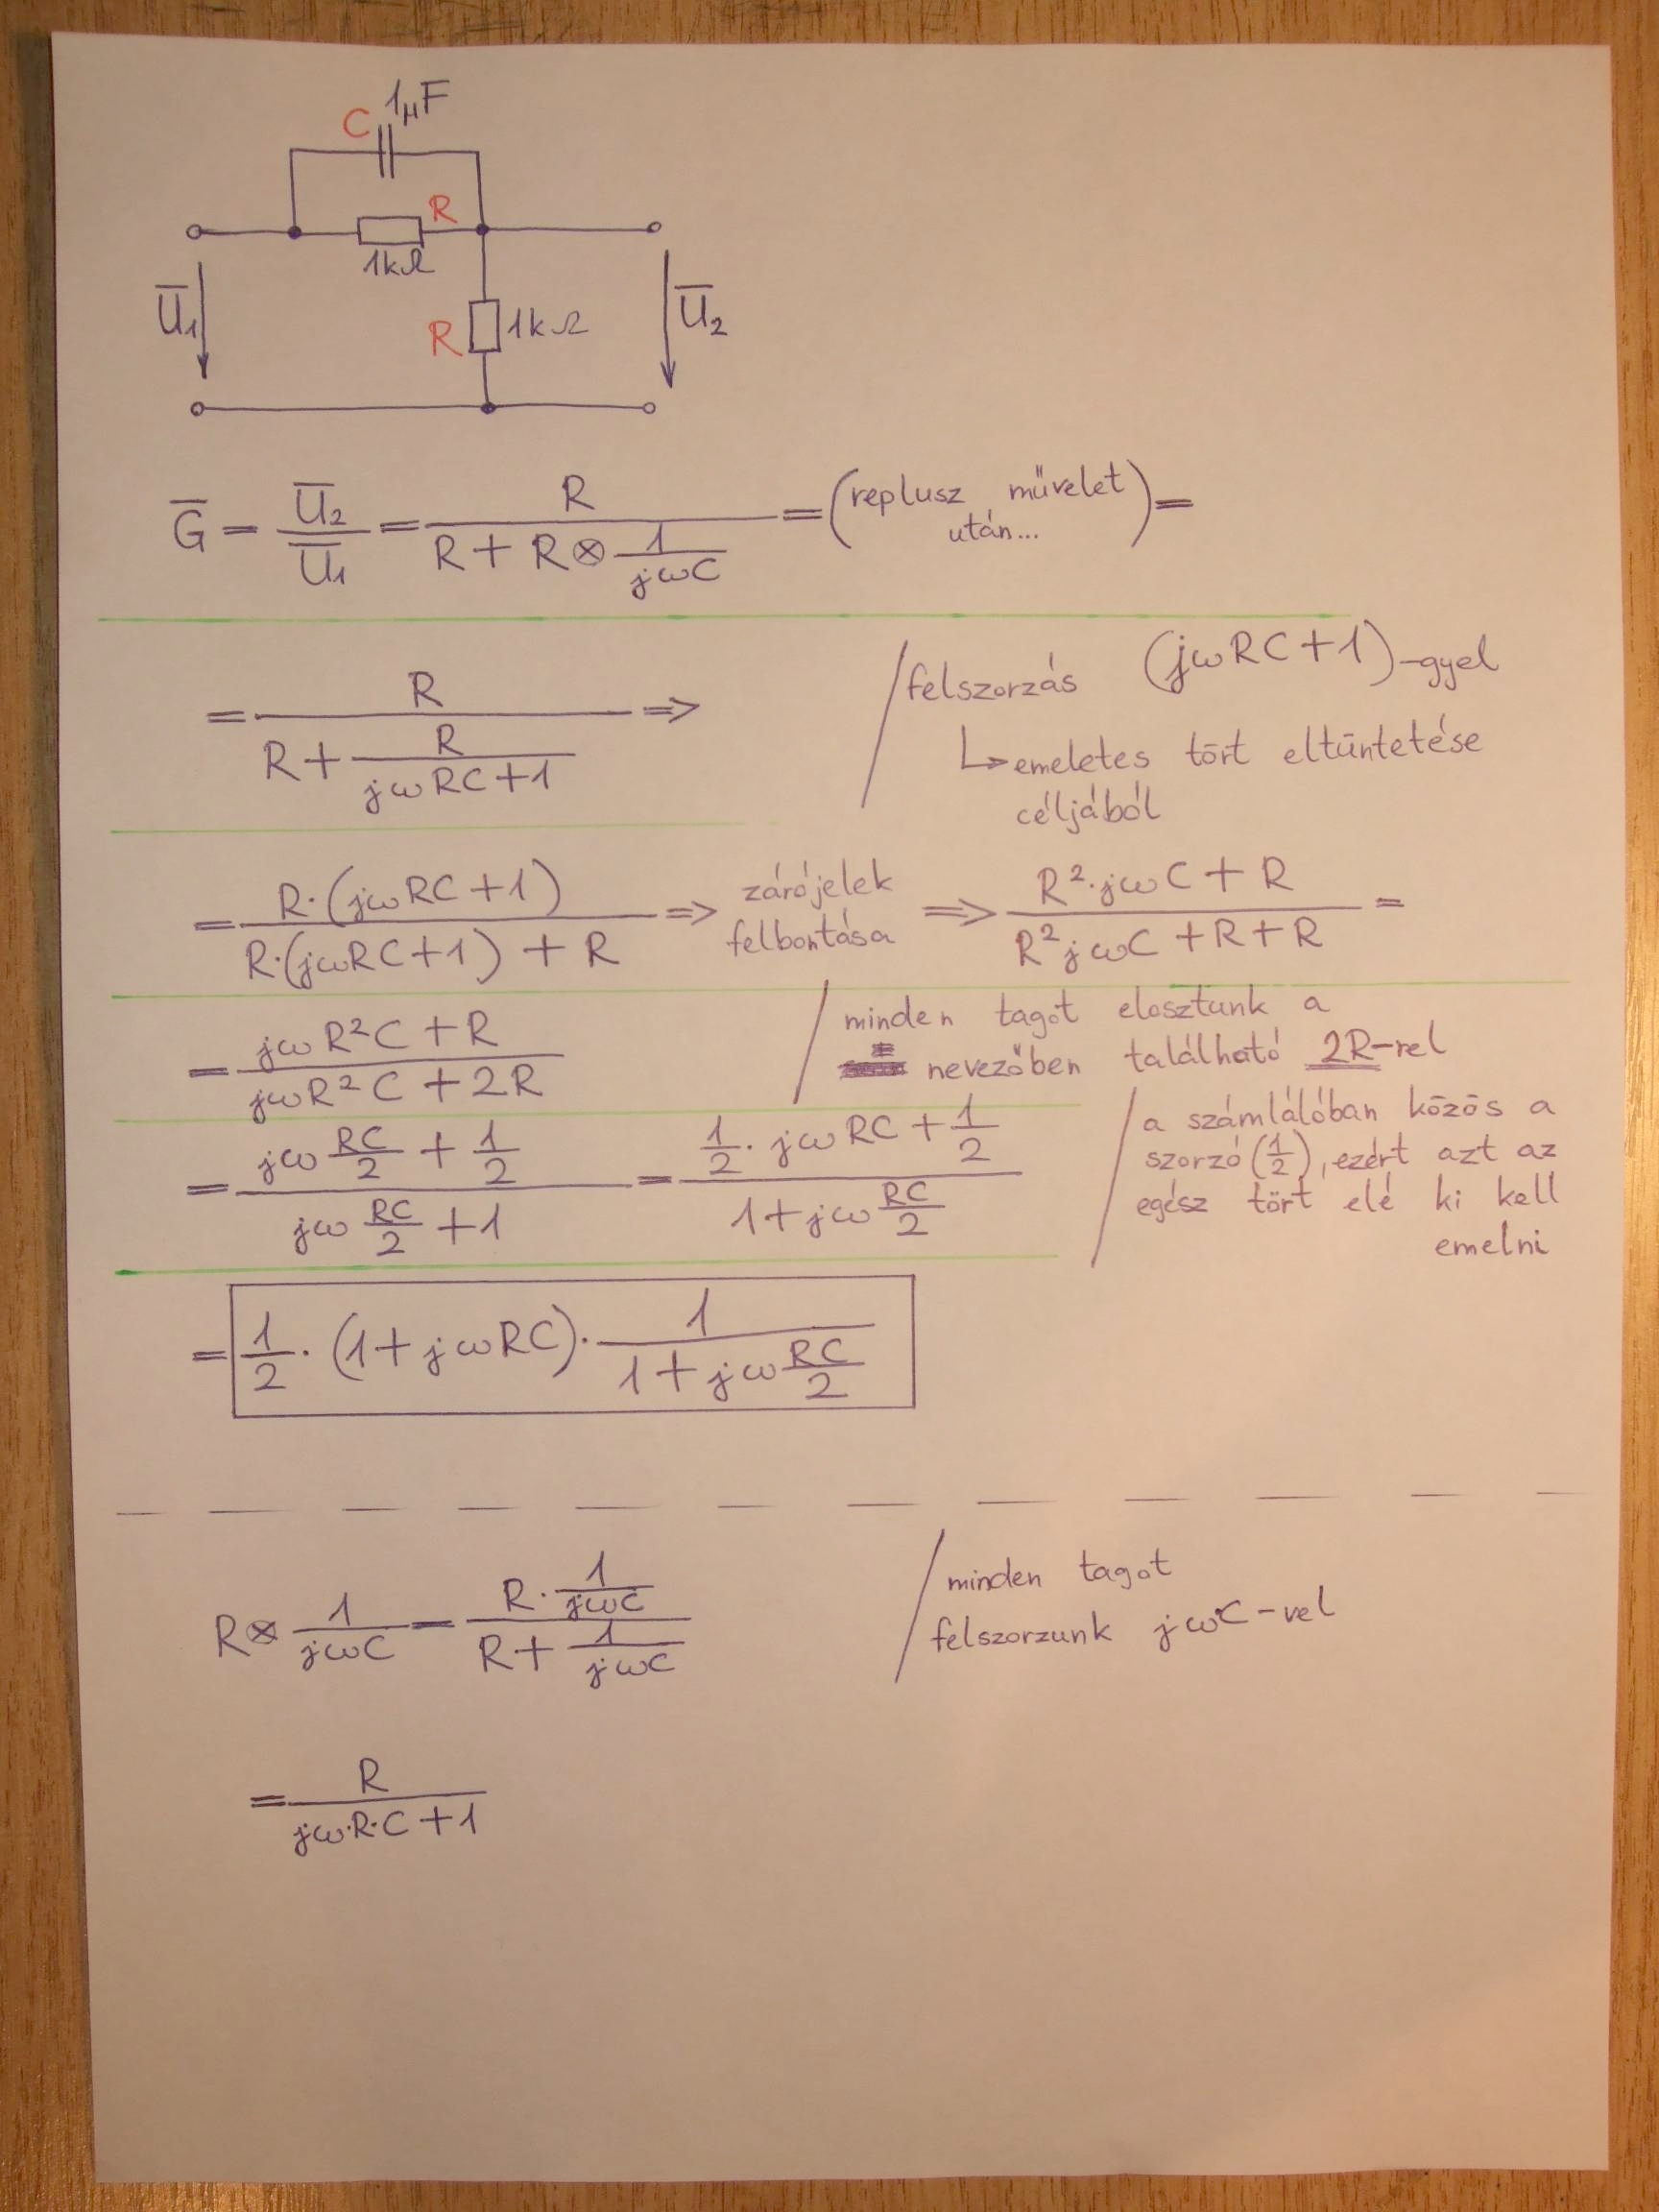 C 1μF
R
1kΩ
U̅₁ R 1kΩ U̅₂
G̅ = U̅₂/U̅₁ = R/(R + R ⊗ 1/(jωC)) = (replusz művelet után...) =
= R/(R + R/(jωRC+1)) ⇒ / felszorzás (jωRC+1)-gyel
↳ emeletes tört eltüntetése
céljából
= R·(jωRC+1)/(R·(jωRC+1) + R) ⇒ zárójelek felbontása ⇒ (R²·jωC + R)/(R²jωC + R + R) =
= (jωR²C + R)/(jωR²C + 2R) / minden tagot elosztunk a
nevezőben található 2R-rel
= (jω RC/2 + 1/2)/(jω RC/2 + 1) = (1/2 · jωRC + 1/2)/(1 + jω RC/2) / a számlálóban közös a
szorzó (1/2), ezért azt az
egész tört elé ki kell
emelni
= 1/2 · (1 + jωRC) · 1/(1 + jω RC/2)
R ⊗ 1/(jωC) = (R · 1/(jωC))/(R + 1/(jωC)) / minden tagot
felszorzunk jωC-vel
= R/(jω·R·C + 1)